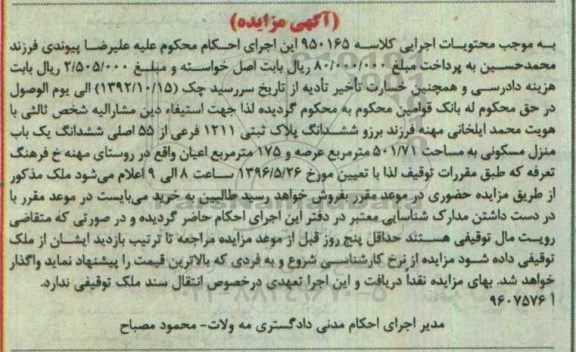 (آگهی مزایده)
به موجب محتویات اجرایی کلاسه ۹۵۰۱۶۵ این اجرای احکام محکوم علیه علیرضا پیوندی فرزند
محمدحسین به پرداخت مبلغ ۸۰/۰۰۰/۰۰۰ ریال بابت اصل خواسته و مبلغ ۲/۵۰۵/۰۰۰ ریال بابت
هزینه دادرسی و همچنین خسارت تأخیر تأدیه از تاریخ سررسید چک (۱۳۹۲/۱۰/۱۵) الی یوم الوصول
در حق محکوم له بانک قوامین محکوم به محکوم گردیده لذا جهت استیفاء دین مشارالیه شخص ثالثی با
هویت محمد ایلخانی مهنه فرزند برزو ششدانگ پلاک ثبتی ۱۲۱۱ فرعی از ۵۵ اصلی ششدانگ یک باب
منزل مسکونی به مساحت ۵۰۱/۷۱ مترمربع عرصه و ۱۷۵ مترمربع اعیان واقع در روستای مهنه خ فرهنگ
تعرفه که طبق مقررات توقیف لذا با تعیین مورخ ۱۳۹۶/۵/۲۶ ساعت ۸ الی ۹ اعلام می‌شود ملک مذکور
از طریق مزایده حضوری در موعد مقرر بفروش خواهد رسید طالبین به خرید می‌بایست در موعد مقرر با
در دست داشتن مدارک شناسایی معتبر در دفتر این اجرای احکام حاضر گردیده و در صورتی که متقاضی
رویت مال توقیفی هستند حداقل پنج روز قبل از موعد مزایده مراجعه تا ترتیب بازدید ایشان از ملک
توقیفی داده شود مزایده از نرخ کارشناسی شروع و به فردی که بالاترین قیمت را پیشنهاد نماید واگذار
خواهد شد. بهای مزایده نقداً دریافت و این اجرا تعهدی درخصوص انتقال سند ملک توقیفی ندارد.
آ ۹۶۰۷۵۷۶
مدیر اجرای احکام مدنی دادگستری مه ولات- محمود مصباح